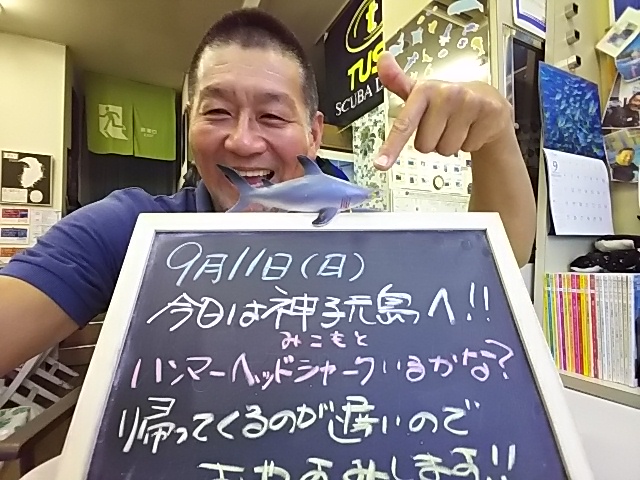 TUSA
SCUBA
9
9月11日(日)
今日は神子元島へ!!
みこもと
ハンマーヘッドシャークいるかな?
帰ってくるのが遅いので
おやすみします!!